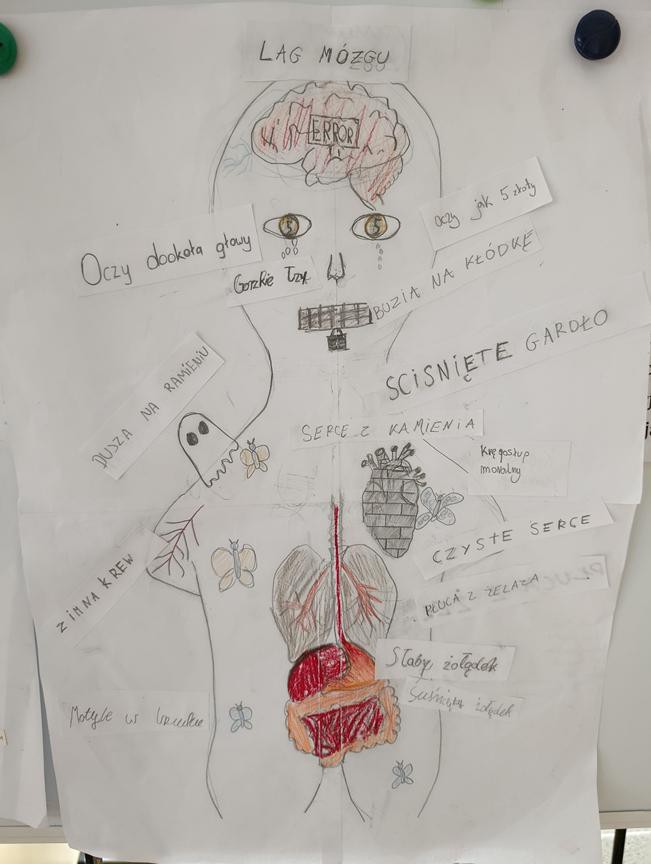 LAG MÓZGU
ERROR
5 5
Oczy jak 5 złoty
Oczy dookoła głowy
Gorzkie łzy
BUZIA NA KŁÓDKĘ
SCISNIĘTE GARDŁO
DUSZA NA RAMIENIU
SERCE Z KAMIENIA
Kręgosłup
moralny
CZYSTE SERCE
ZIMNA KREW
PŁUCA Z ŻELAZA
Słaby żołądek
żołądek
Motyle w